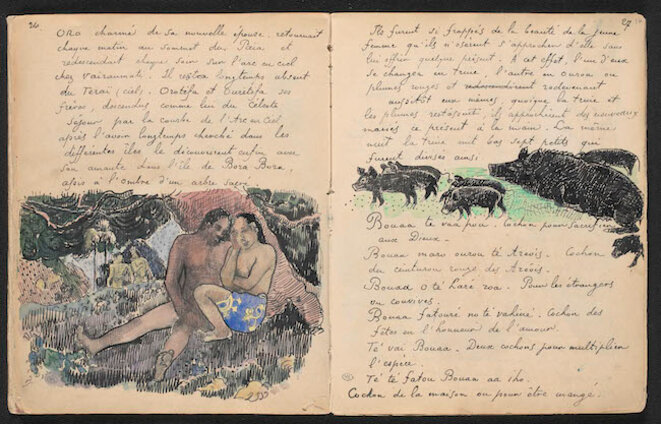 26
Oro charmé de sa nouvelle épouse retournait
chaque matin au sommet du Païa et
redescendait chaque soir sur l'arc en ciel
chez Vairaumati. Il resta longtemps absent
du Terai (ciel). Orotéfa et Ouretéfa ses
frères, descendus comme lui du Céleste
Séjour par la courbe de l'Arc en Ciel
après l'avoir longtemps cherché dans les
différentes îles le découvrirent enfin avec
son amante dans l'île de Bora Bora,
assis à l'ombre d'un arbre sacré
27
Ils furent si frappés de la beauté de la jeune
femme qu'ils n'osèrent s'approcher d'elle sans
lui offrir quelque présent. A cet effet l'un d'eux
se changea en truie, l'autre en ourou ou
plumes rouges et redescendirent redevenant
aussitôt eux mêmes, quoique la truie et
les plumes restassent, ils approchèrent des nouveaux
mariés ce présent à la main. La même
nuit la truie mit bas sept petits qui
furent divisés ainsi
Bouaa te vaa poa. Cochon pour sacrifier
aux Dieux.
Bouaa maro ourou té Areois. Cochon
du ceinturon rouge des Areois.
Bouaa o té Laré roa. Pour les étrangers
ou convives.
Bouaa fatouré no té vahiné. Cochon des
fêtes en l'honneur de l'amour.
Té vai Bouaa. Deux cochons pour multiplier
l'espèce.
Té té fatou Bouaa aa iho.
Cochon de la maison ou pour être mangé.